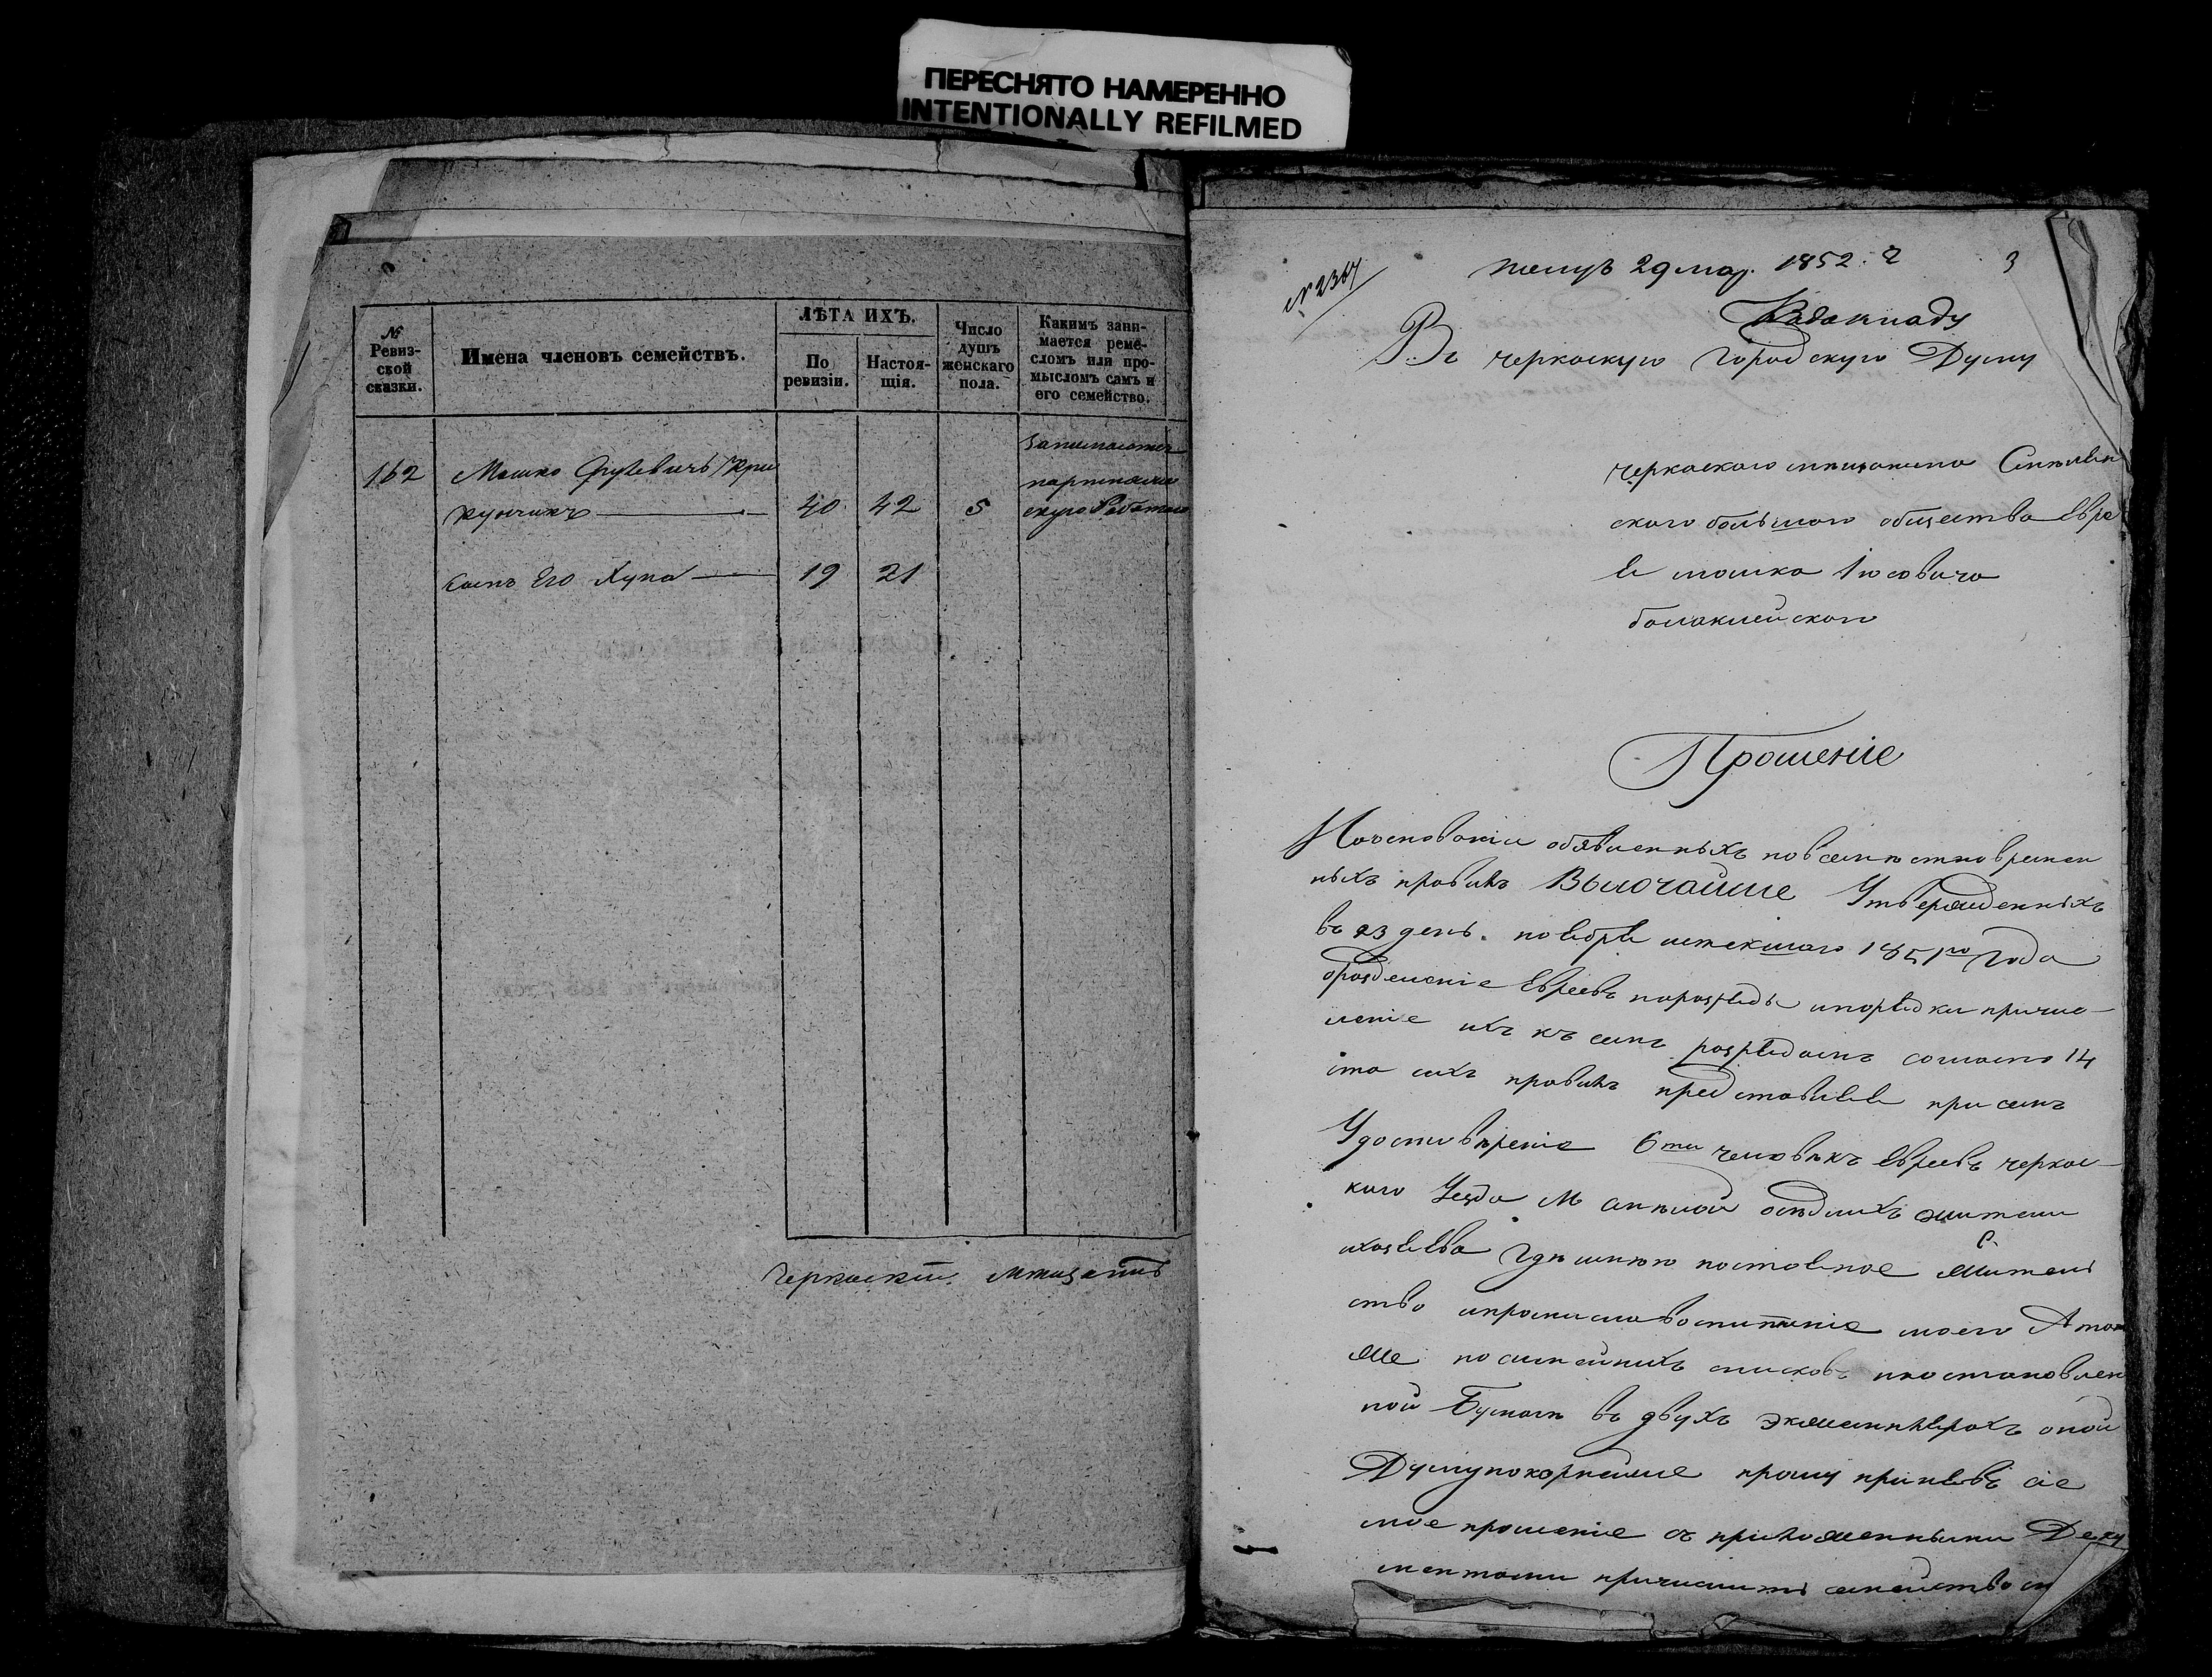 ПЕРЕСНЯТО НАМЕРЕННО
INTENTIONALLY REFILMED
№ Ревиз-
ской
сказки.
Имена членовъ семействъ.
ЛѢТА ИХЪ.
По
ревизіи.
Настоя-
щія.
Число
душъ
женскаго
пола.
Какимъ зани-
мается реме-
сломъ или про-
мысломъ самъ и
его семейство.
162 Мошко
40 42 5
Сынъ Его 19 21
Черкаскій мещанинъ
№ 2367
29 мая 1852 г
3
Къ докладу
Въ черкаскую Городскую Думу
черкаского мещанина Смелян
ского большого общества Евре
я мошка Іосовича
балаклейского
Прошеніе
обявленныхъ повсеместно времен
ныхъ правилъ Высочайше Утвержденныхъ
въ 23 день ноября истекшаго 1851го Года
о разделеніе Евреевъ на разряды и порядки причис-
леніе ихъ къ симъ разрядамъ согласно 14
ста сихъ правилъ представляя при семъ
Удостовереніе 6ти человекъ Евреевъ черкас-
кого Уезда М Смелой оседлихъ жители
и хозяева Где имею постояное жител
ство и промисла воспитаніе моего А так
же посемейнихъ списковъ на установлен
ной Бумаге въ двухъ экземплярахъ оной
Думу покорнейше прошу принявъ сіе
мое прошеніе съ приложенными Доку
ментами причислить семейство м